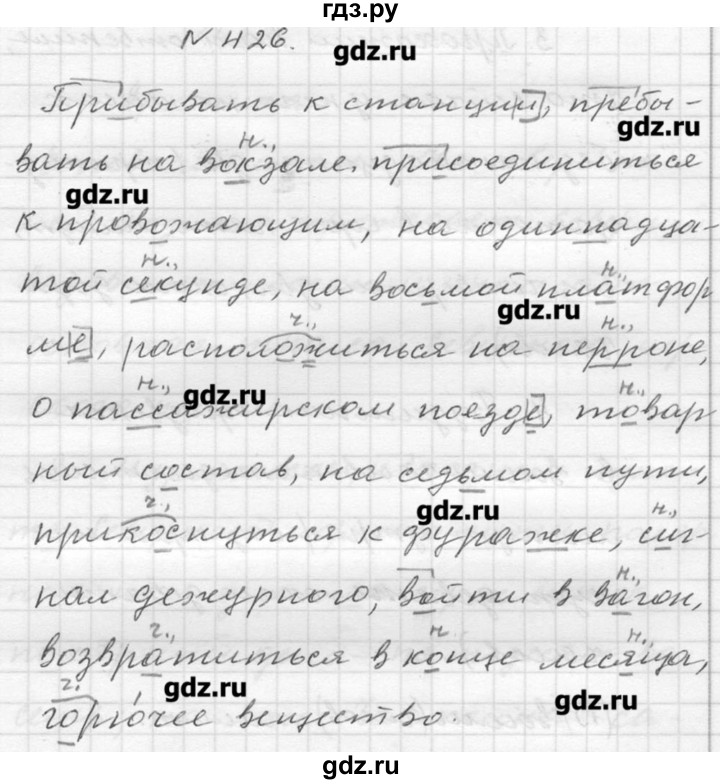 гдз.ру
N 426.
gdz.ru
Прибывать к станции, пребы-
gdz.ru
вать на вокзале. присоединиться
gdz.ru
к провожающим, на одиннадца-
той секунде, на восьмой платфор-
gdz.ru
ме, расположиться на перроне,
о пассажирском поезде, товар-
gdz.ru
ный состав, на седьмом пути,
gdz.ru
прикоснуться к фуражке, сиг-
нал дежурного, войти в вагон,
возвратиться в конце месяца,
gdz.ru
gdz.ru
горючее вещество.
gdz.ru